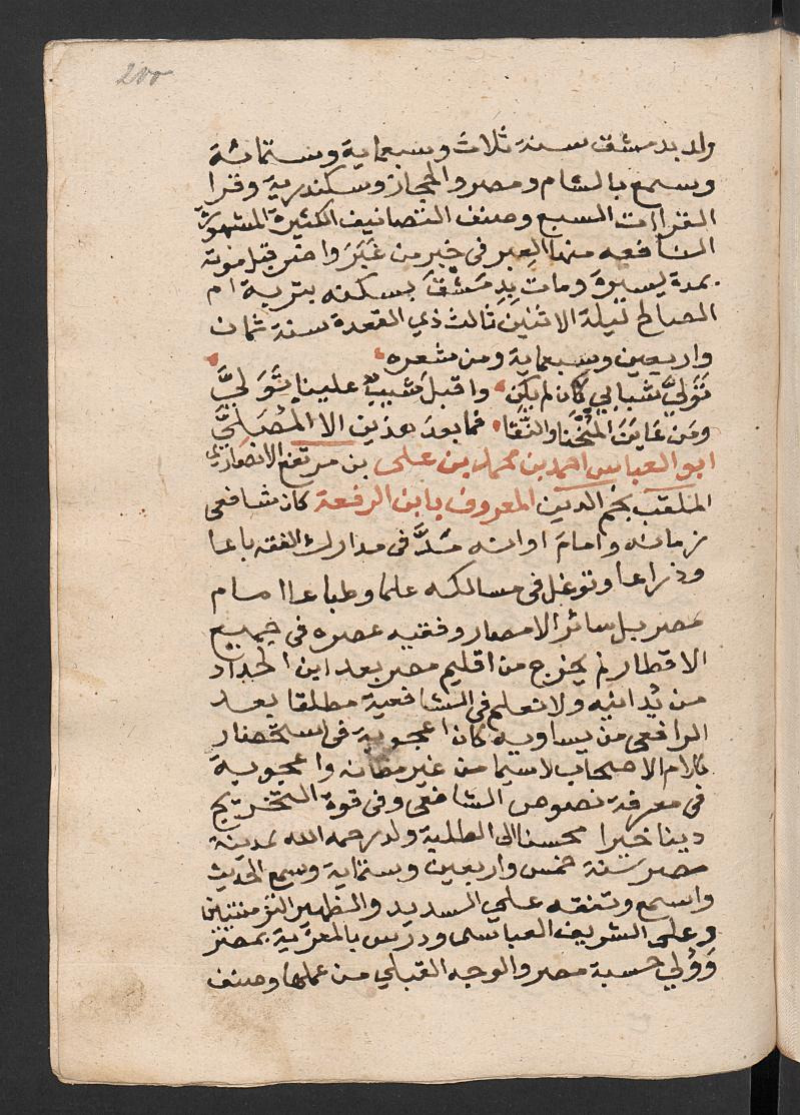 200
ولد بدمشق سنة ثلاث وسبعماية وستمائة
وسمع بالشام ومصر والحجاز وسكندرية وقرا
القراات السبع وصنف التصانيف الكثيرة المشهورة
النافعه منها العبر في خبر من غَبَرَ واضر قبل موته
بمدة يسيرة ومات بدِمَشْقَ بسكنه بتربة ام
الصالح ليلة الاثنين ثالث ذي القعدة سنة ثمان
واربعين وسبعماية ومن شعره
تَوَلَّي شبابي كان لم يكن واقبل شيب علينا تَوَلَّيَ
ومَن عَايَنَ المُنْحَنا والنَّقَا فما بعد هذين الا المُصَلَّيَ
ابو العباس احمد بن محمد بن علي بن مرتفع الانصاري
الملقب بنجم الدين المعروف بابن الرفعة كان شافعي
زمانه وامام اوانه مَدَّ في مدارك الفقه باعا
وذراعا وتوغل في مسالكه علما وطباعا امام
مصر بل سائر الامصار وفقيه عصره في جميع
الاقطار لم يخرج من اقليم مصر بعد ابن الحداد
من يُدانيه ولا نعلم في الشافعية مطلقا بعد
الرافعي من يساويه كان اعجوبة في استحضار
كلام الاصحاب لاسيما من غير مظانه واعجوبة
في معرفة نصوص الشافعي وفي قوة التخريج
دينا خيرا محسنا الي الطلبة ولد رحمه الله بمدينة
مصر سنة خمس واربعين وستماية وسمع الحديث
واسمع وتفقه علي السديد والظهير التزمنتيين
وعلي الشريف العباسي ودرس بالمعزية بمصر
وَوُلي حسبة مصر والوجه القبلي من عملها وصنف